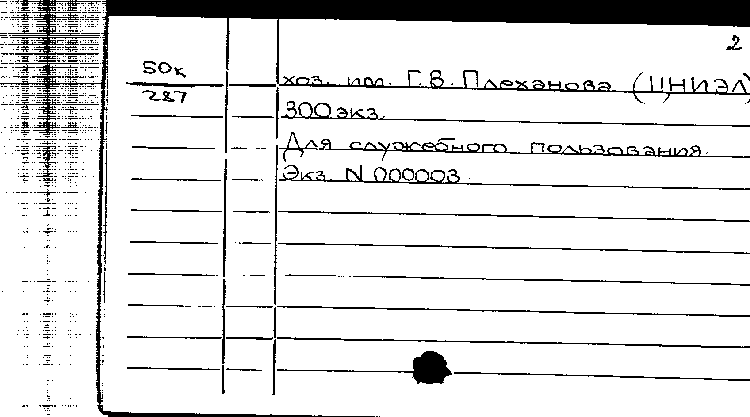 2
50к
287
хоз. им. Г.В. Плеханова (ЦНИЭЛ)
300 экз.
Для служебного пользования.
Экз. N 000003.